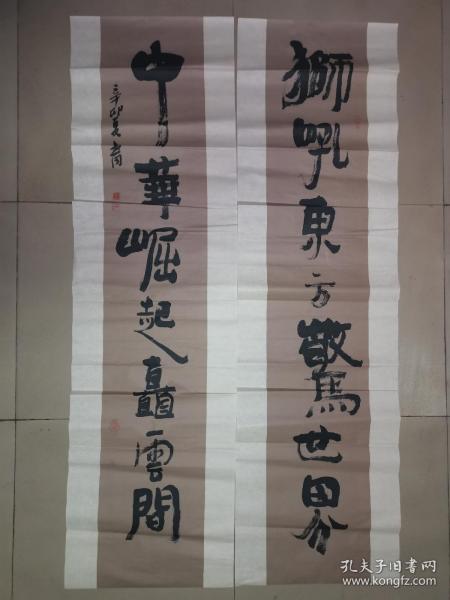 獅吼東方驚世界
中華崛起矗雲間
辛卯夏
孔夫子旧书网
www.kongfz.com